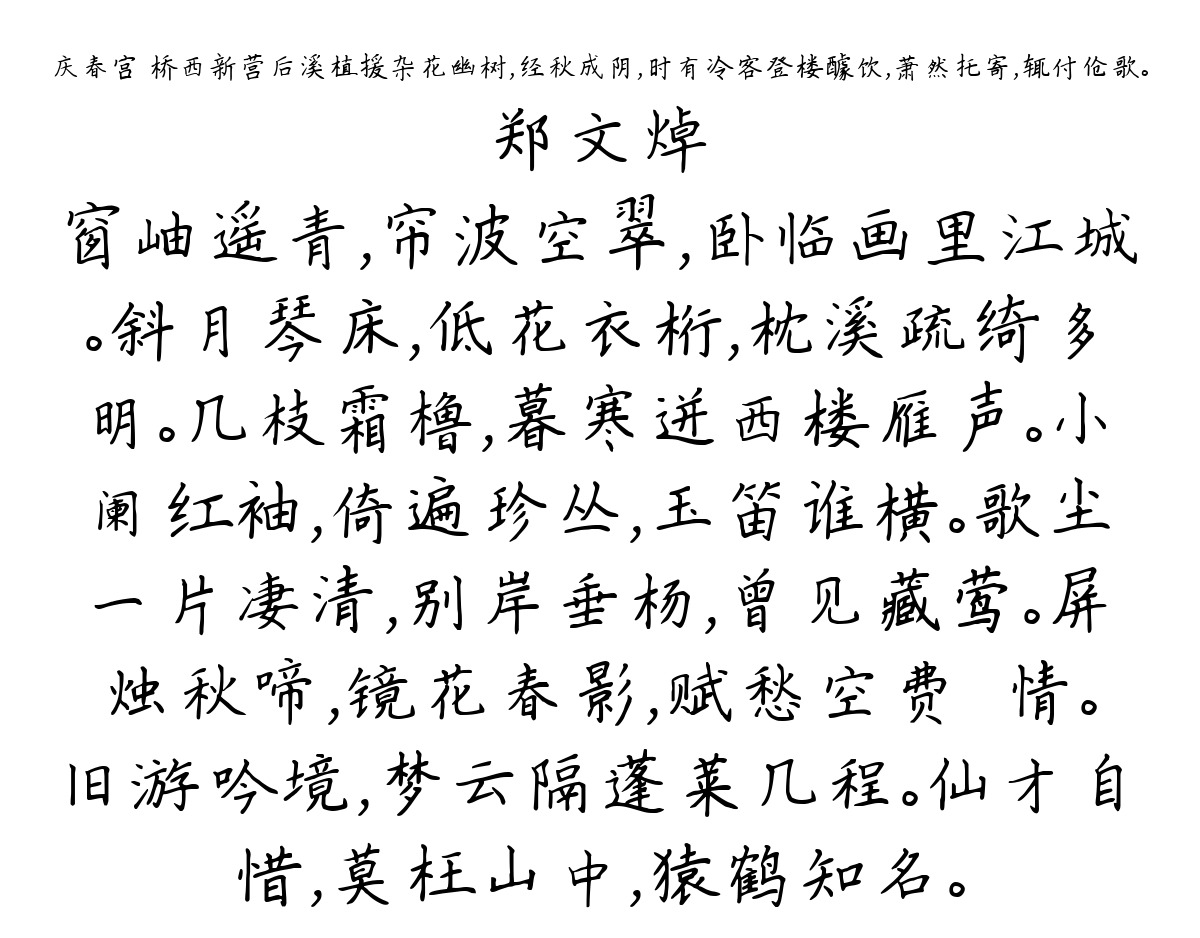 庆春宫 桥西新营后溪植援杂花幽树,经秋成阴,时有冷客登楼醵饮,萧然托寄,辄付伧歌。
郑文焯
窗岫遥青,帘波空翠,卧临画里江城
。斜月琴床,低花衣桁,枕溪疏绮多
明。几枝霜橹,暮寒迸西楼雁声。小
阑红袖,倚遍珍丛,玉笛谁横。歌尘
一片凄清,别岸垂杨,曾见藏莺。屏
烛秋啼,镜花春影,赋愁空费 情。
旧游吟境,梦云隔蓬莱几程。仙才自
惜,莫枉山中,猿鹤知名。